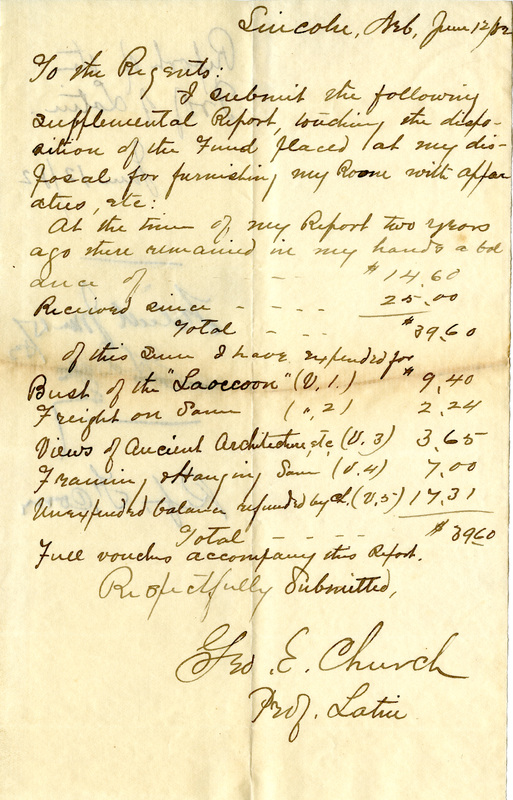 Lincoln, Neb, June 12/82
To the Regents:
I submit the following
supplemental Report, touching the dispo-
sition of the Fund placed at my dis-
posal for furnishing my Room with appar
atus, etc:
At the time of my Report two years
ago there remained in my hands a bal
ance of - - - $14.60
Received since - - - - 25.00
Total - - - $39.60
of this sum I have expended for
Bust of the "Laocoon" (V.1.) $9.40
Freight on Same (",2) 2.24
Views of Ancient Architecture, etc (V.3) 3.65
Framing & Hanging Same (V.4) 7.00
Unexpended balance refunded by ch. (V.5) 17.31
Total - - - - - $39.60
Full vouches accompany this Report.
Respectfully Submitted,
Geo. E. Church
Prof. Latin